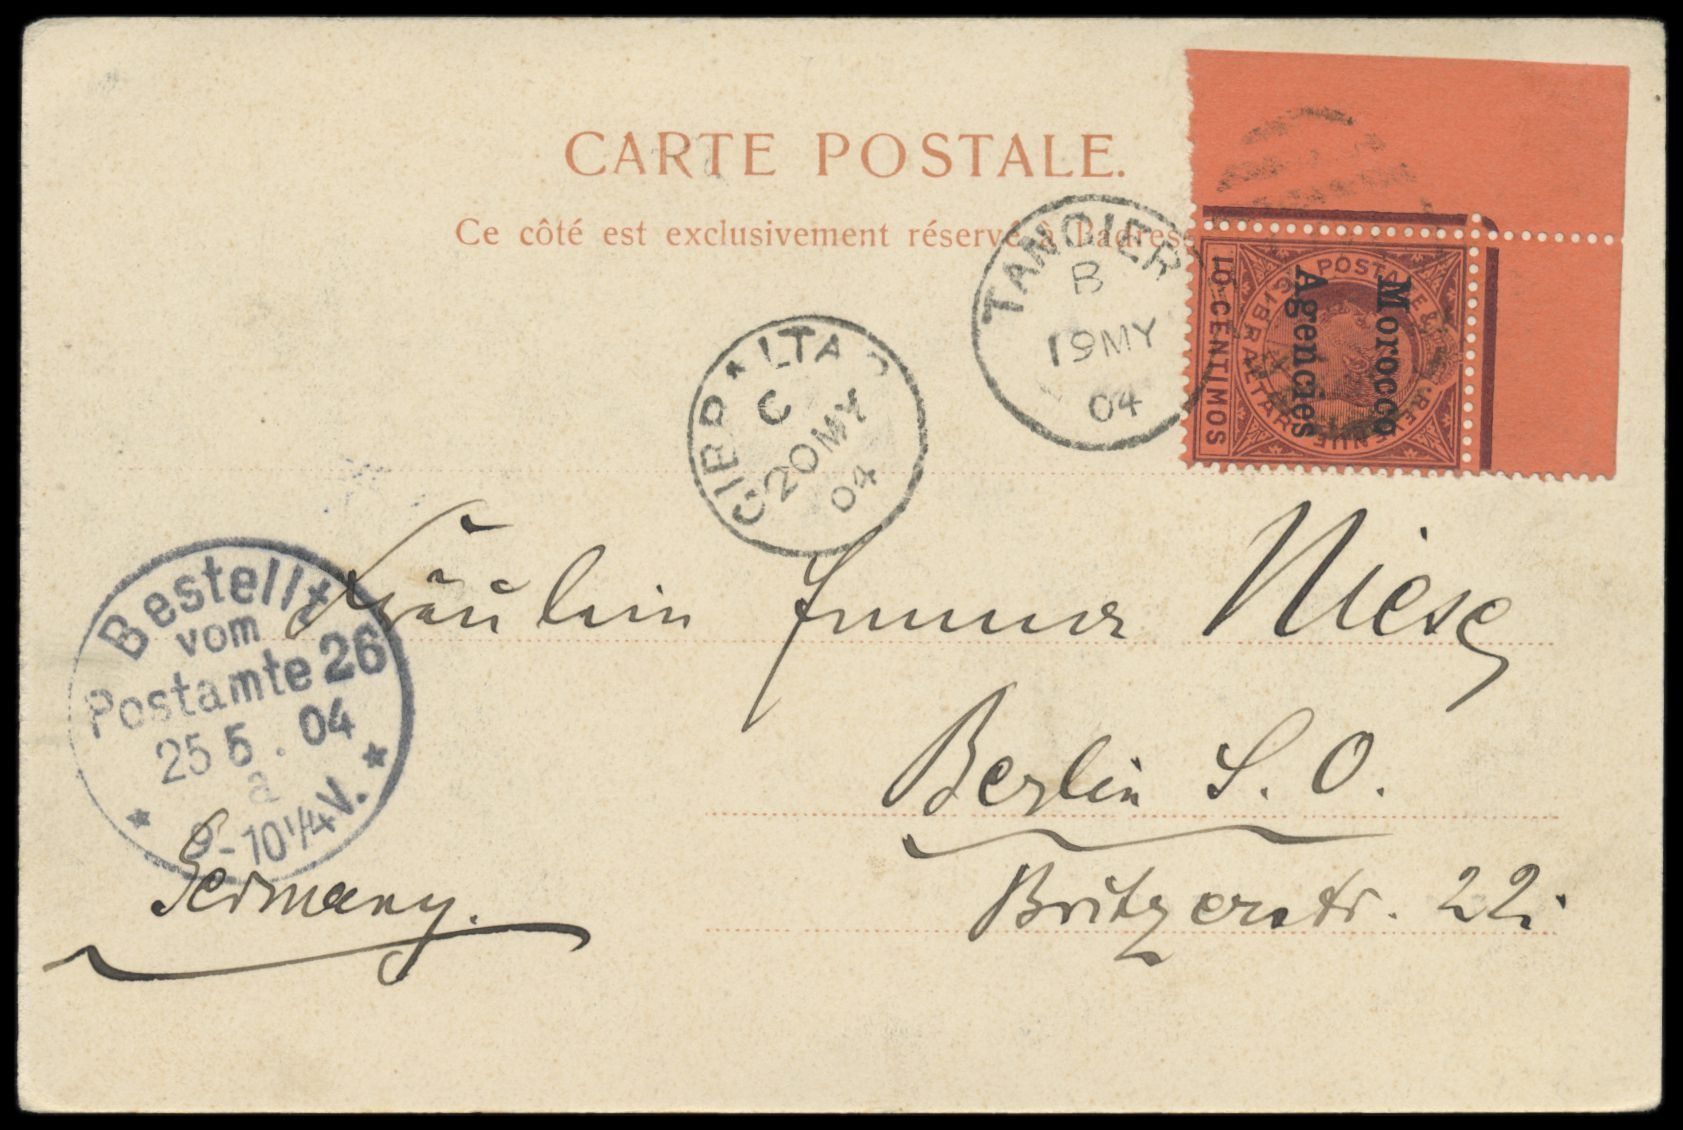 CARTE POSTALE.
Ce côté est exclusivement réservé à l'adresse
TANGIER
B
19MY
04
Morocco
Agencies
POSTAGE & REVENUE
GIBRALTAR
10 CENTIMOS
GIBRALTAR
C
20MY
04
Bestellt
vom
Postamte 26
25 5. 04
a
9-10¼V.
Fräulein Emma Niese
Berlin S. O.
Britzerstr. 22.
Germany.